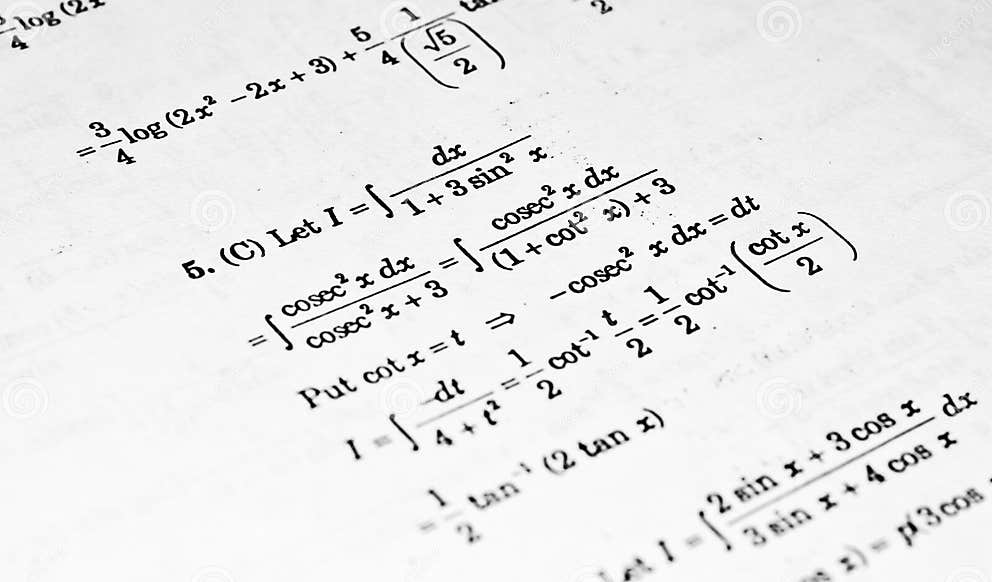 3/4 log (2x
= 3/4 log (2x² − 2x + 3) + 5/4 1/(√5/2)
2
5. (C) Let I = ∫ dx/(1 + 3 sin² x)
= ∫ cosec² x dx/(cosec² x + 3) = ∫ cosec² x dx/((1 + cot² x) + 3)
Put cot x = t ⇒ − cosec² x dx = dt
I = ∫ −dt/(4 + t²) = 1/2 cot⁻¹ t/2 = 1/2 cot⁻¹ (cot x/2).
= 1/2 tan⁻¹ (2 tan x)
Let I = ∫ (2 sin x + 3 cos x)/(3 sin x + 4 cos x) dx
x) = p(3 cos